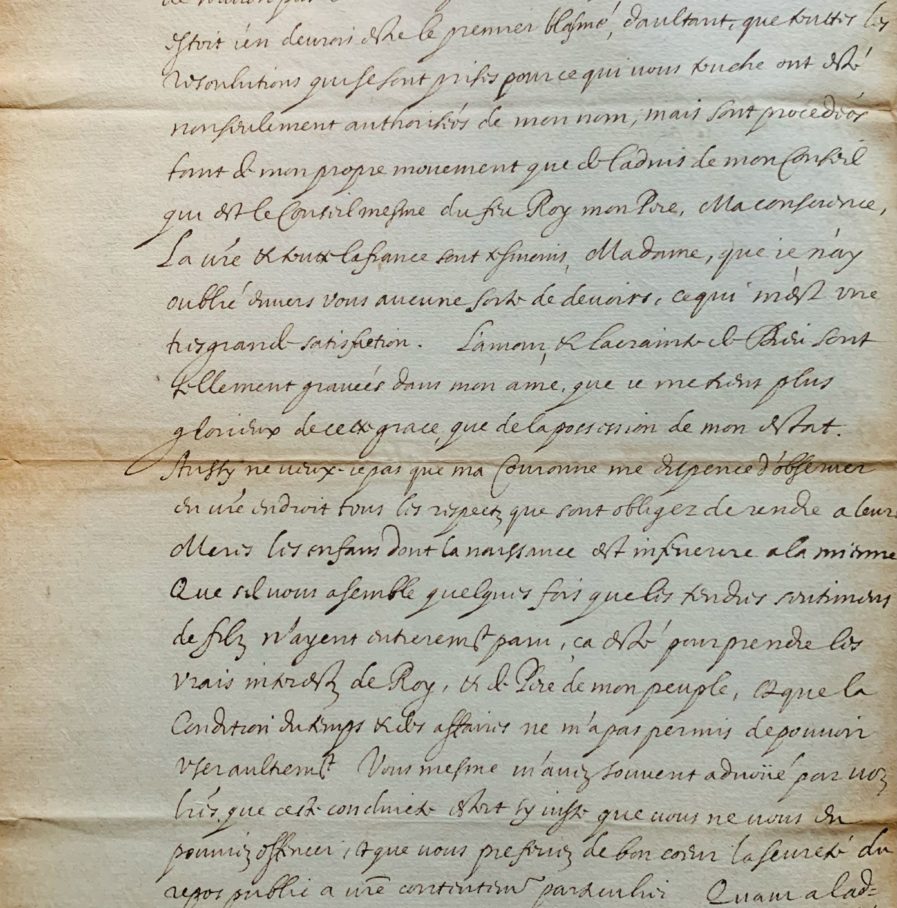 estoit i'en devrois estre le premier blasmé, daultant, que touttes les
resoulutions qui se sont prises pour ce qui vous touche ont esté
non seulement authorisées de mon nom, mais sont procedées
tant de mon propre mouvement que de ladvis de mon Conseil
qui est le Conseil mesme du feu Roy mon Pere, Ma conscience,
La vre & toute la france sont tesmoins, Madame, que ie n'ay
oublié envers vous aucune sorte de devoirs, ce qui m'est une
tresgrande satisfaction. L'amour, & la crainte de Dieu sont
tellement gravées dans mon ame, que ie me tiens plus
glorieux de ceste grace, que de la possession de mon estat.
Aussy ne veux-ie pas que ma Couronne me dispence d'observer
en vre endroit tous les respectz que sont obligez de rendre a leurs
Meres les enfans dont la naissance est inferieure a la mienne
Que sil vous a semblé quelques fois que les tendres sentimens
de filz n'ayent entierement paru, ça esté pour prendre les
vrais interestz de Roy, & de Pere de mon peuple, Et que la
Condition du temps & des affaires ne m'a pas permis de pouvoir
user aultremt Vous mesme m'avez souvent advoüé par voz
lres, que ceste conduicte estoit sy iuste que vous ne vous en
pouviez offencer, & que vous preferiez de bon coeur la seureté du
repos public a vre contentemt particulier Quant a lad=